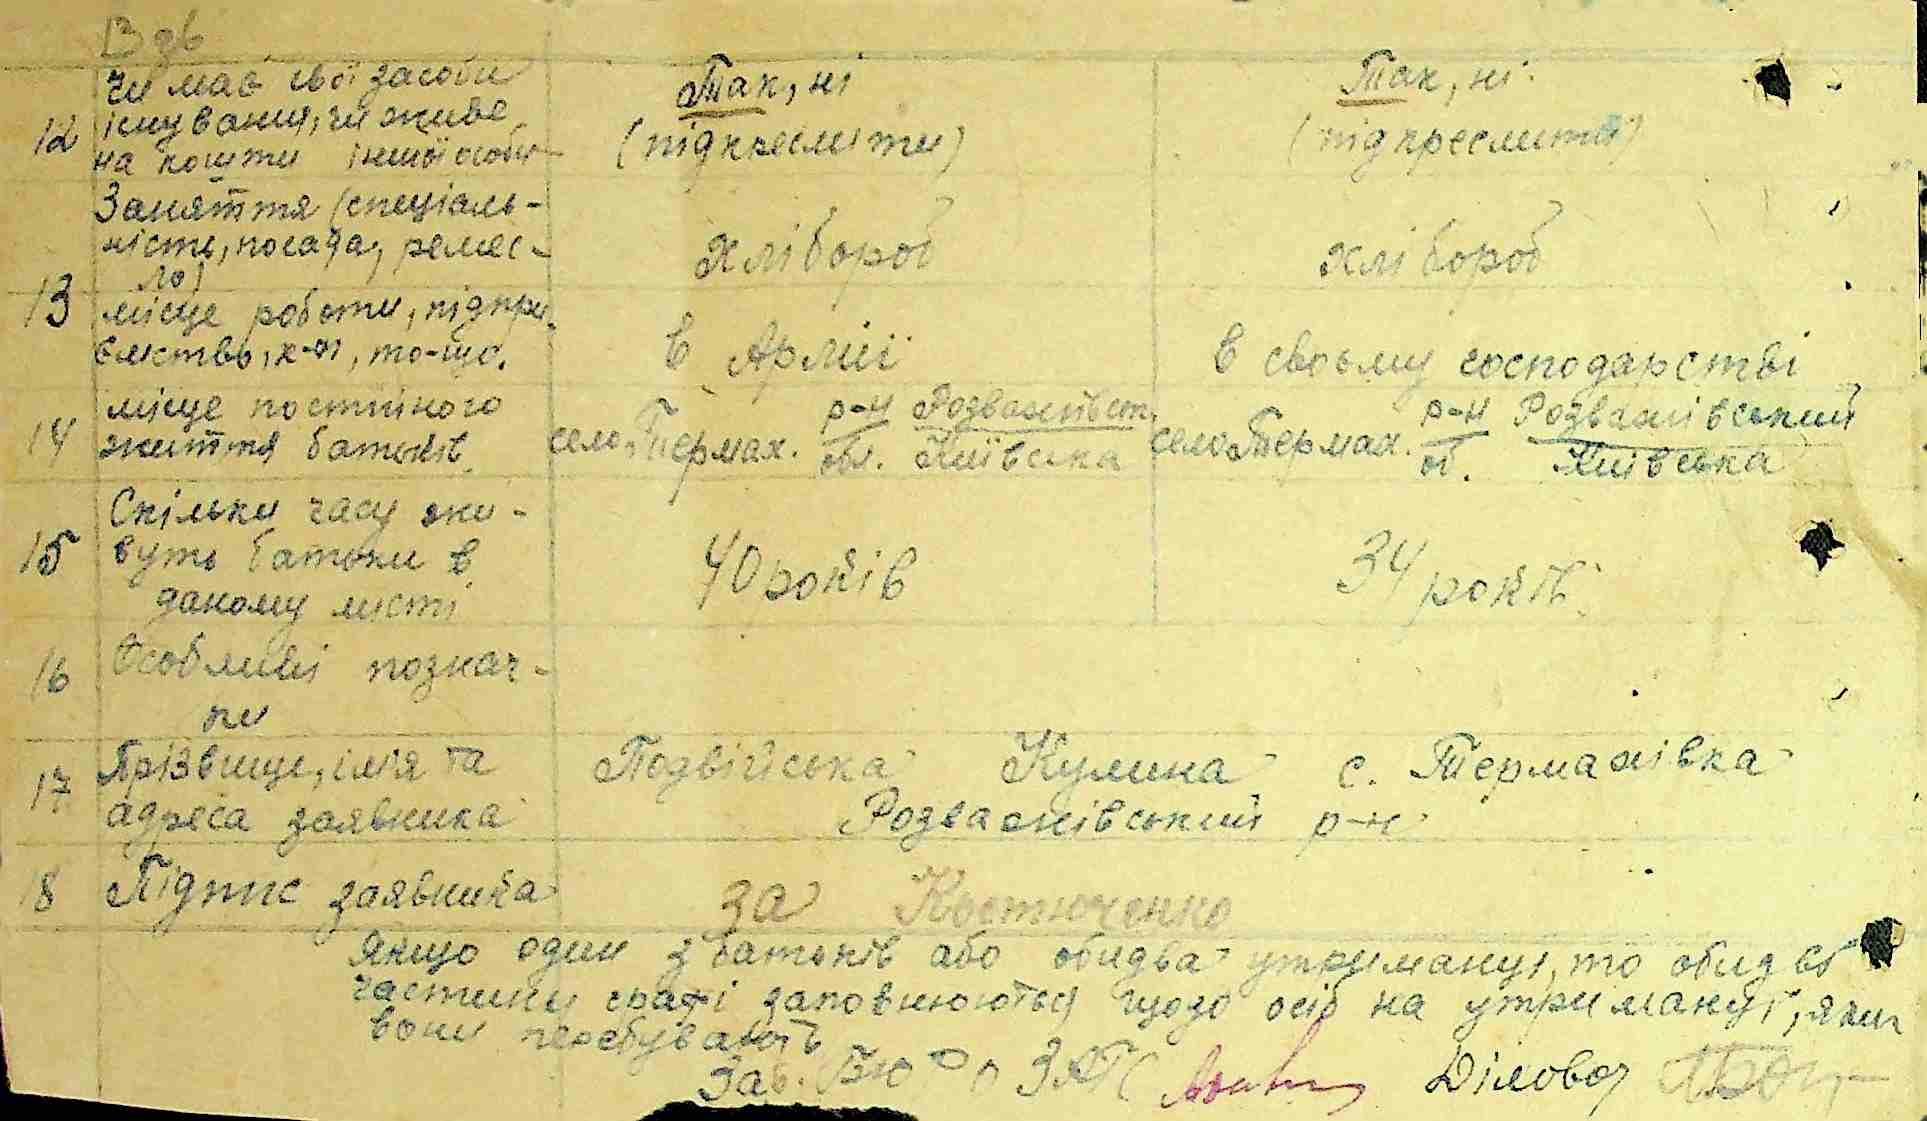 Чи має свої засоби
12 існування, чи живе
на кошти іншої особи
Так, ні
(підкреслити)
Так, ні.
(підкреслити)
13 Заняття (спеціаль-
ність, посада, ремес-
ло)
хлібороб
хлібороб
місце роботи, підпри-
ємство, к-п, то-що.
в Армії
в своьму господарстві
14 місце постійного
життя батьків
село Термах. р-н Розважівськ.
обл. Київська
село Термах. р-н Розважівський
об. Київська
15 Скільки часу жи-
вуть батьки в
даному місті
40 років
34 років.
16 Особливі познач-
ки
17 Прізвище, імя та
адреса заявника
Подвійська Кулина с. Термахівка
Розважівський р-н
18 Підпис заявника
за Костюченко
Якщо один з батьків або обидва утриманці, то обидві
частини графі заповнюються щодо осіб на утриманції, яких
вони перебувають
Зав. Бюро ЗАГС Діловод